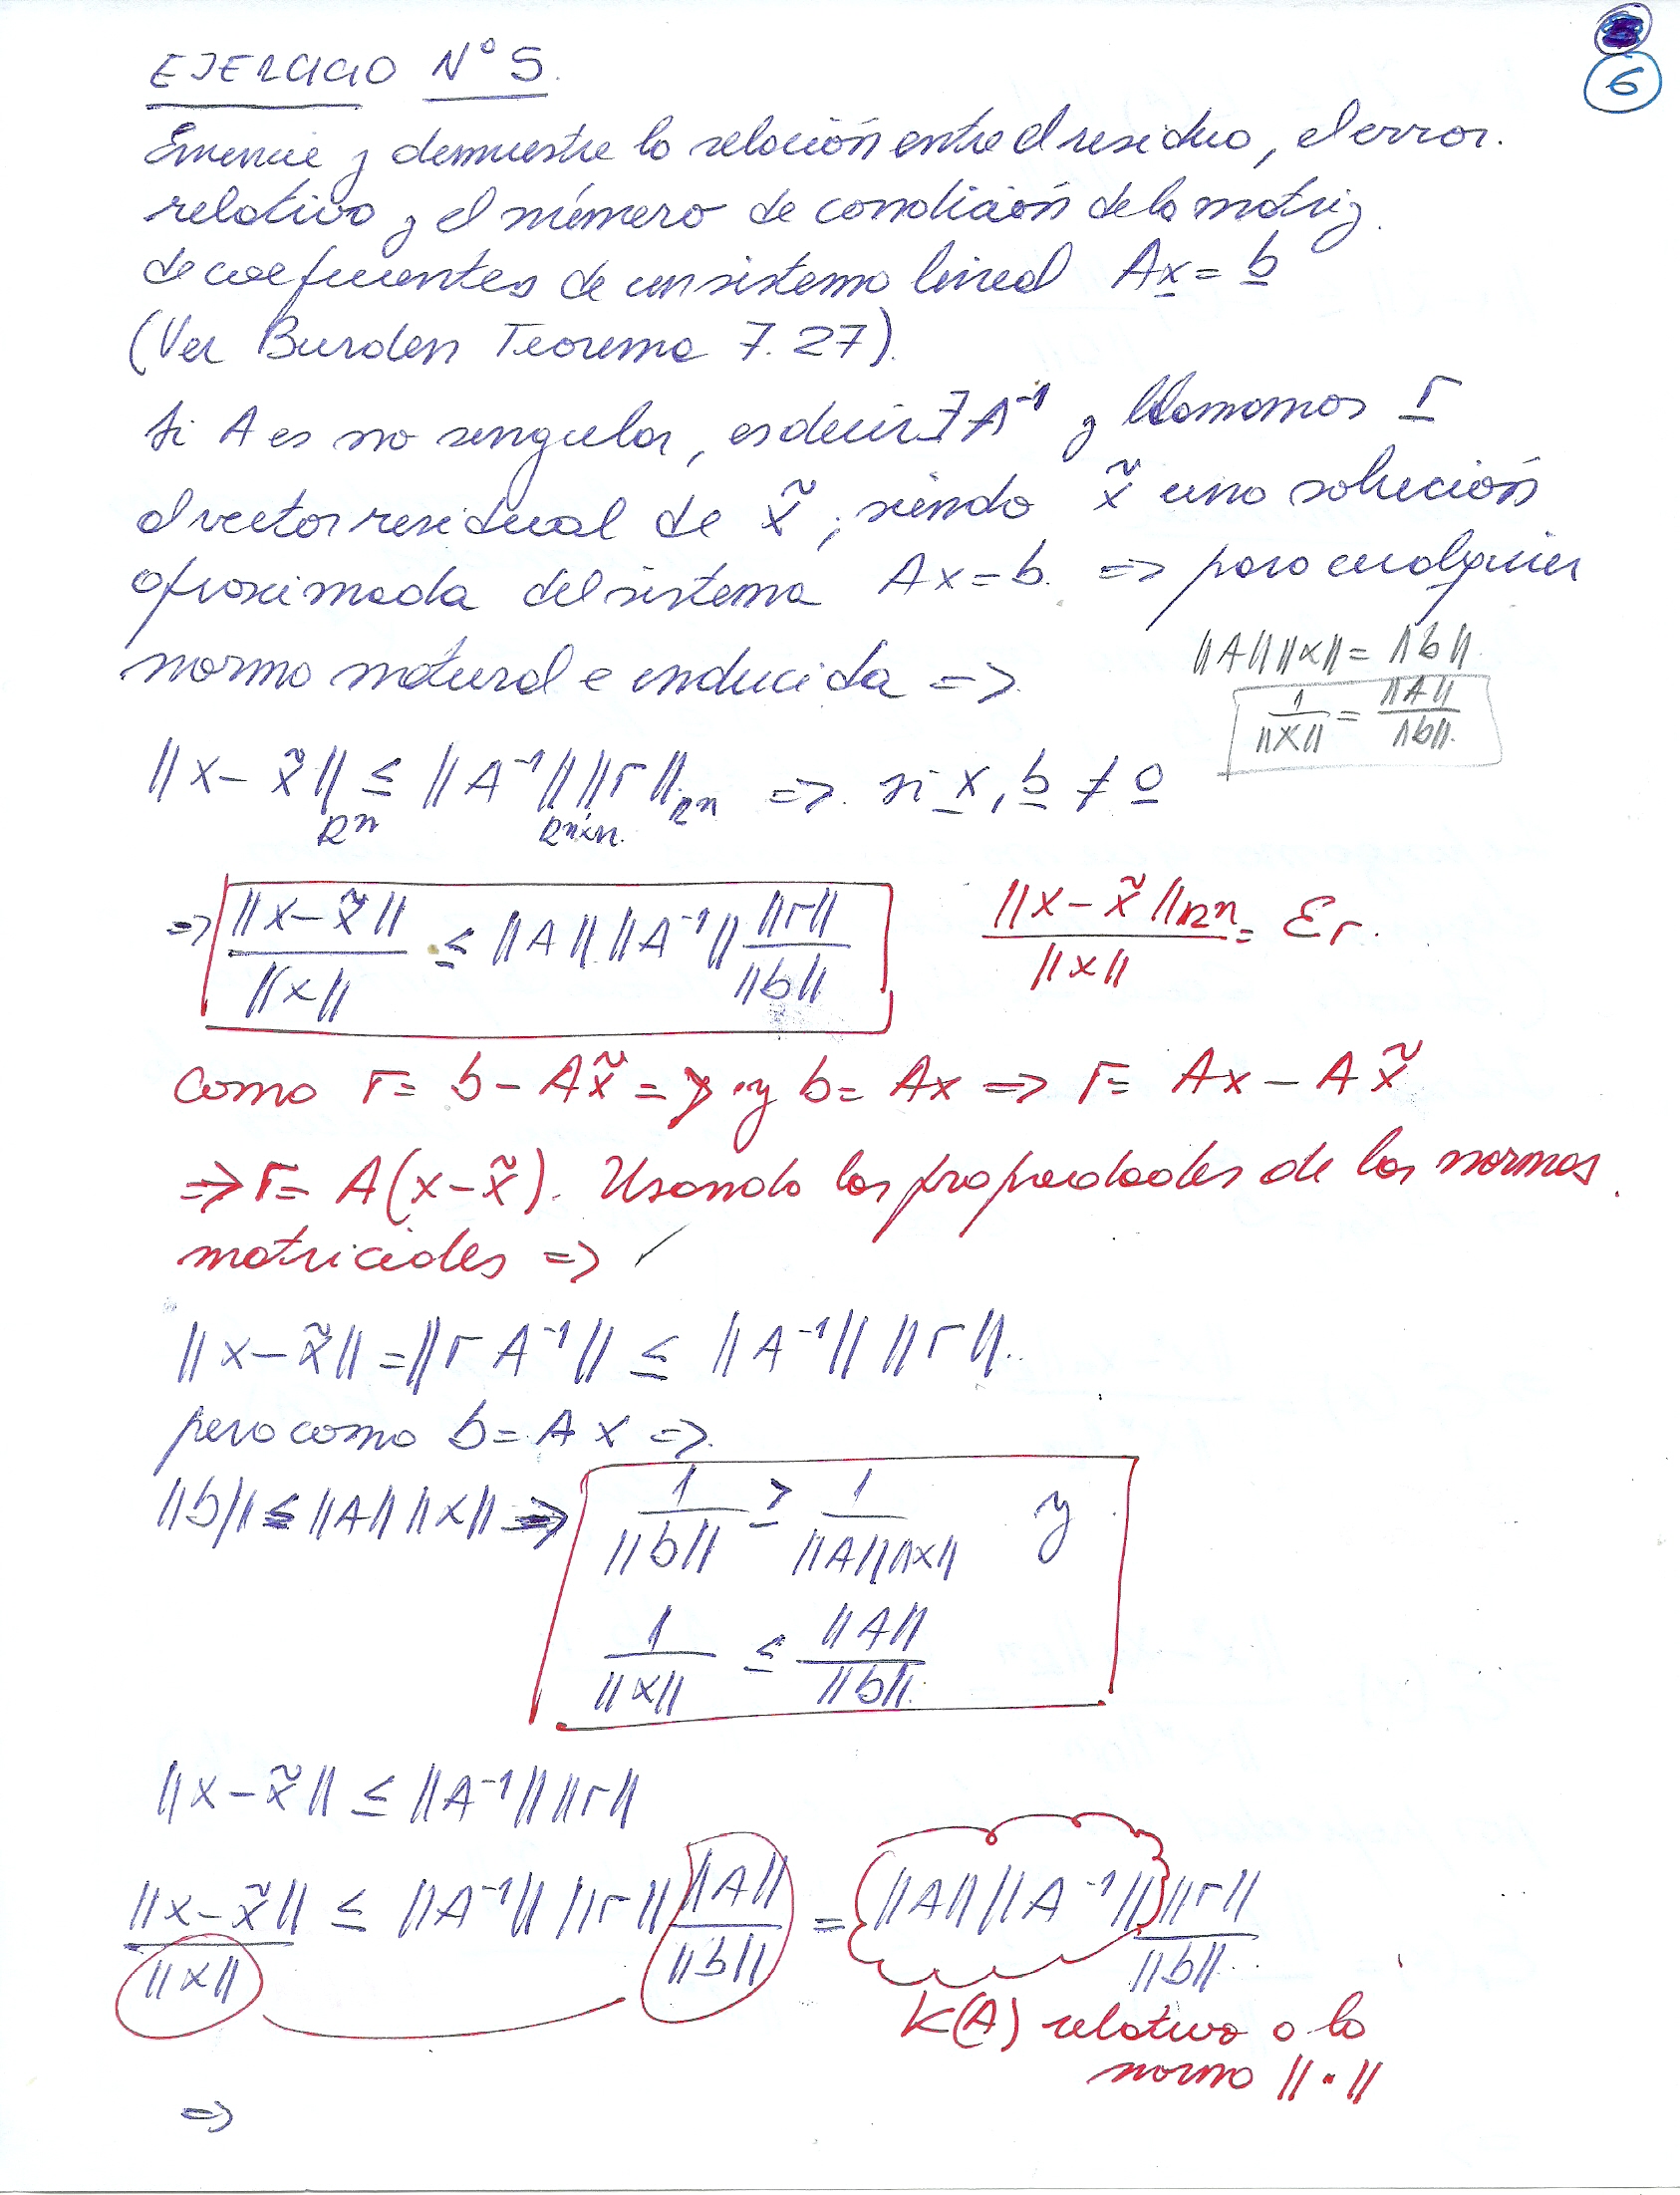 6
EJERCICIO Nº 5.
Enuncie y demuestre la relación entre el residuo, el error.
relativo y el número de condición de la matriz.
de coeficientes de un sistema lineal Ax = b
(Ver Burden Teorema 7.27).
Si A es no singular, es decir ∃ A⁻¹ y llamamos r
el vector residual de x̃, siendo x̃ una solución
aproximada del sistema Ax = b. => para cualquier
norma natural e inducida =>.
||A|| ||x|| = ||b||.
1/||x|| = ||A||/||b||.
||x - x̃||ℝⁿ ≤ ||A⁻¹||ℝⁿˣⁿ ||r||ℝⁿ =>. si x, b ≠ 0
=> ||x - x̃||/||x|| ≤ ||A|| ||A⁻¹|| ||r||/||b|| ||x - x̃||ℝⁿ/||x|| = Er.
Como r = b - Ax̃ = y b = Ax => r = Ax - Ax̃
=> r = A(x - x̃). Usando las propiedades de las normas.
matriciales => ✓
||x - x̃|| = ||r A⁻¹|| ≤ ||A⁻¹|| ||r||.
pero como b = Ax =>.
||b|| ≤ ||A|| ||x|| => 1/||b|| ≥ 1/||A|| ||x|| y
1/||x|| ≤ ||A||/||b||.
||x - x̃|| ≤ ||A⁻¹|| ||r||
||x - x̃||/||x|| ≤ ||A⁻¹|| ||r|| ||A||/||b|| = ||A|| ||A⁻¹|| ||r||/||b||.
K(A) relativo a la
norma ||·||
=>